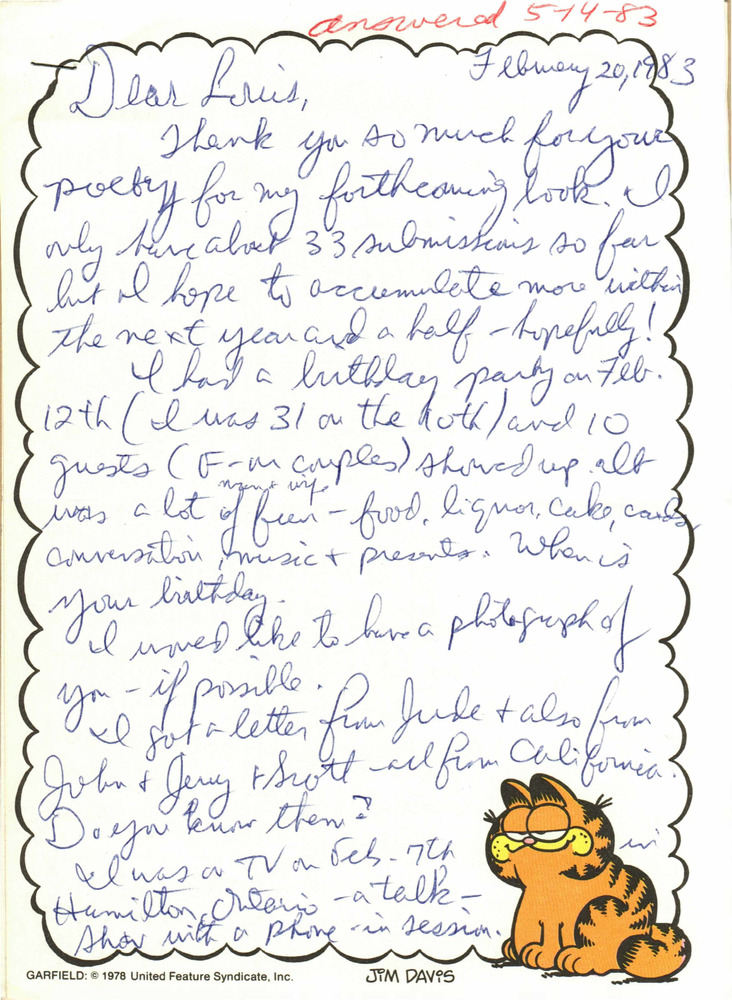 answered 5-14-83
February 20, 1983
Dear Louis,
Thank you so much for your
poetry for my forthcoming book. I
only have about 33 submissions so far
but I hope to accumulate more within
the next year and a half - hopefully!
I had a birthday party on Feb.
12th (I was 31 on the 10th) and 10
guests (F-M couples) showed up. It
man + wife
was a lot of fun - food, liquor, cake, cards,
conversation, music + presents. When is
your birthday.
I would like to have a photograph of
you - if possible.
I got a letter from Jude + also from
John + Jerry + Scott - all from California.
Do you know them?
I was on TV on Feb. 7th in
Hamilton, Ontario - a talk -
show with a phone-in session.
GARFIELD: © 1978 United Feature Syndicate, Inc.
JIM DAVIS